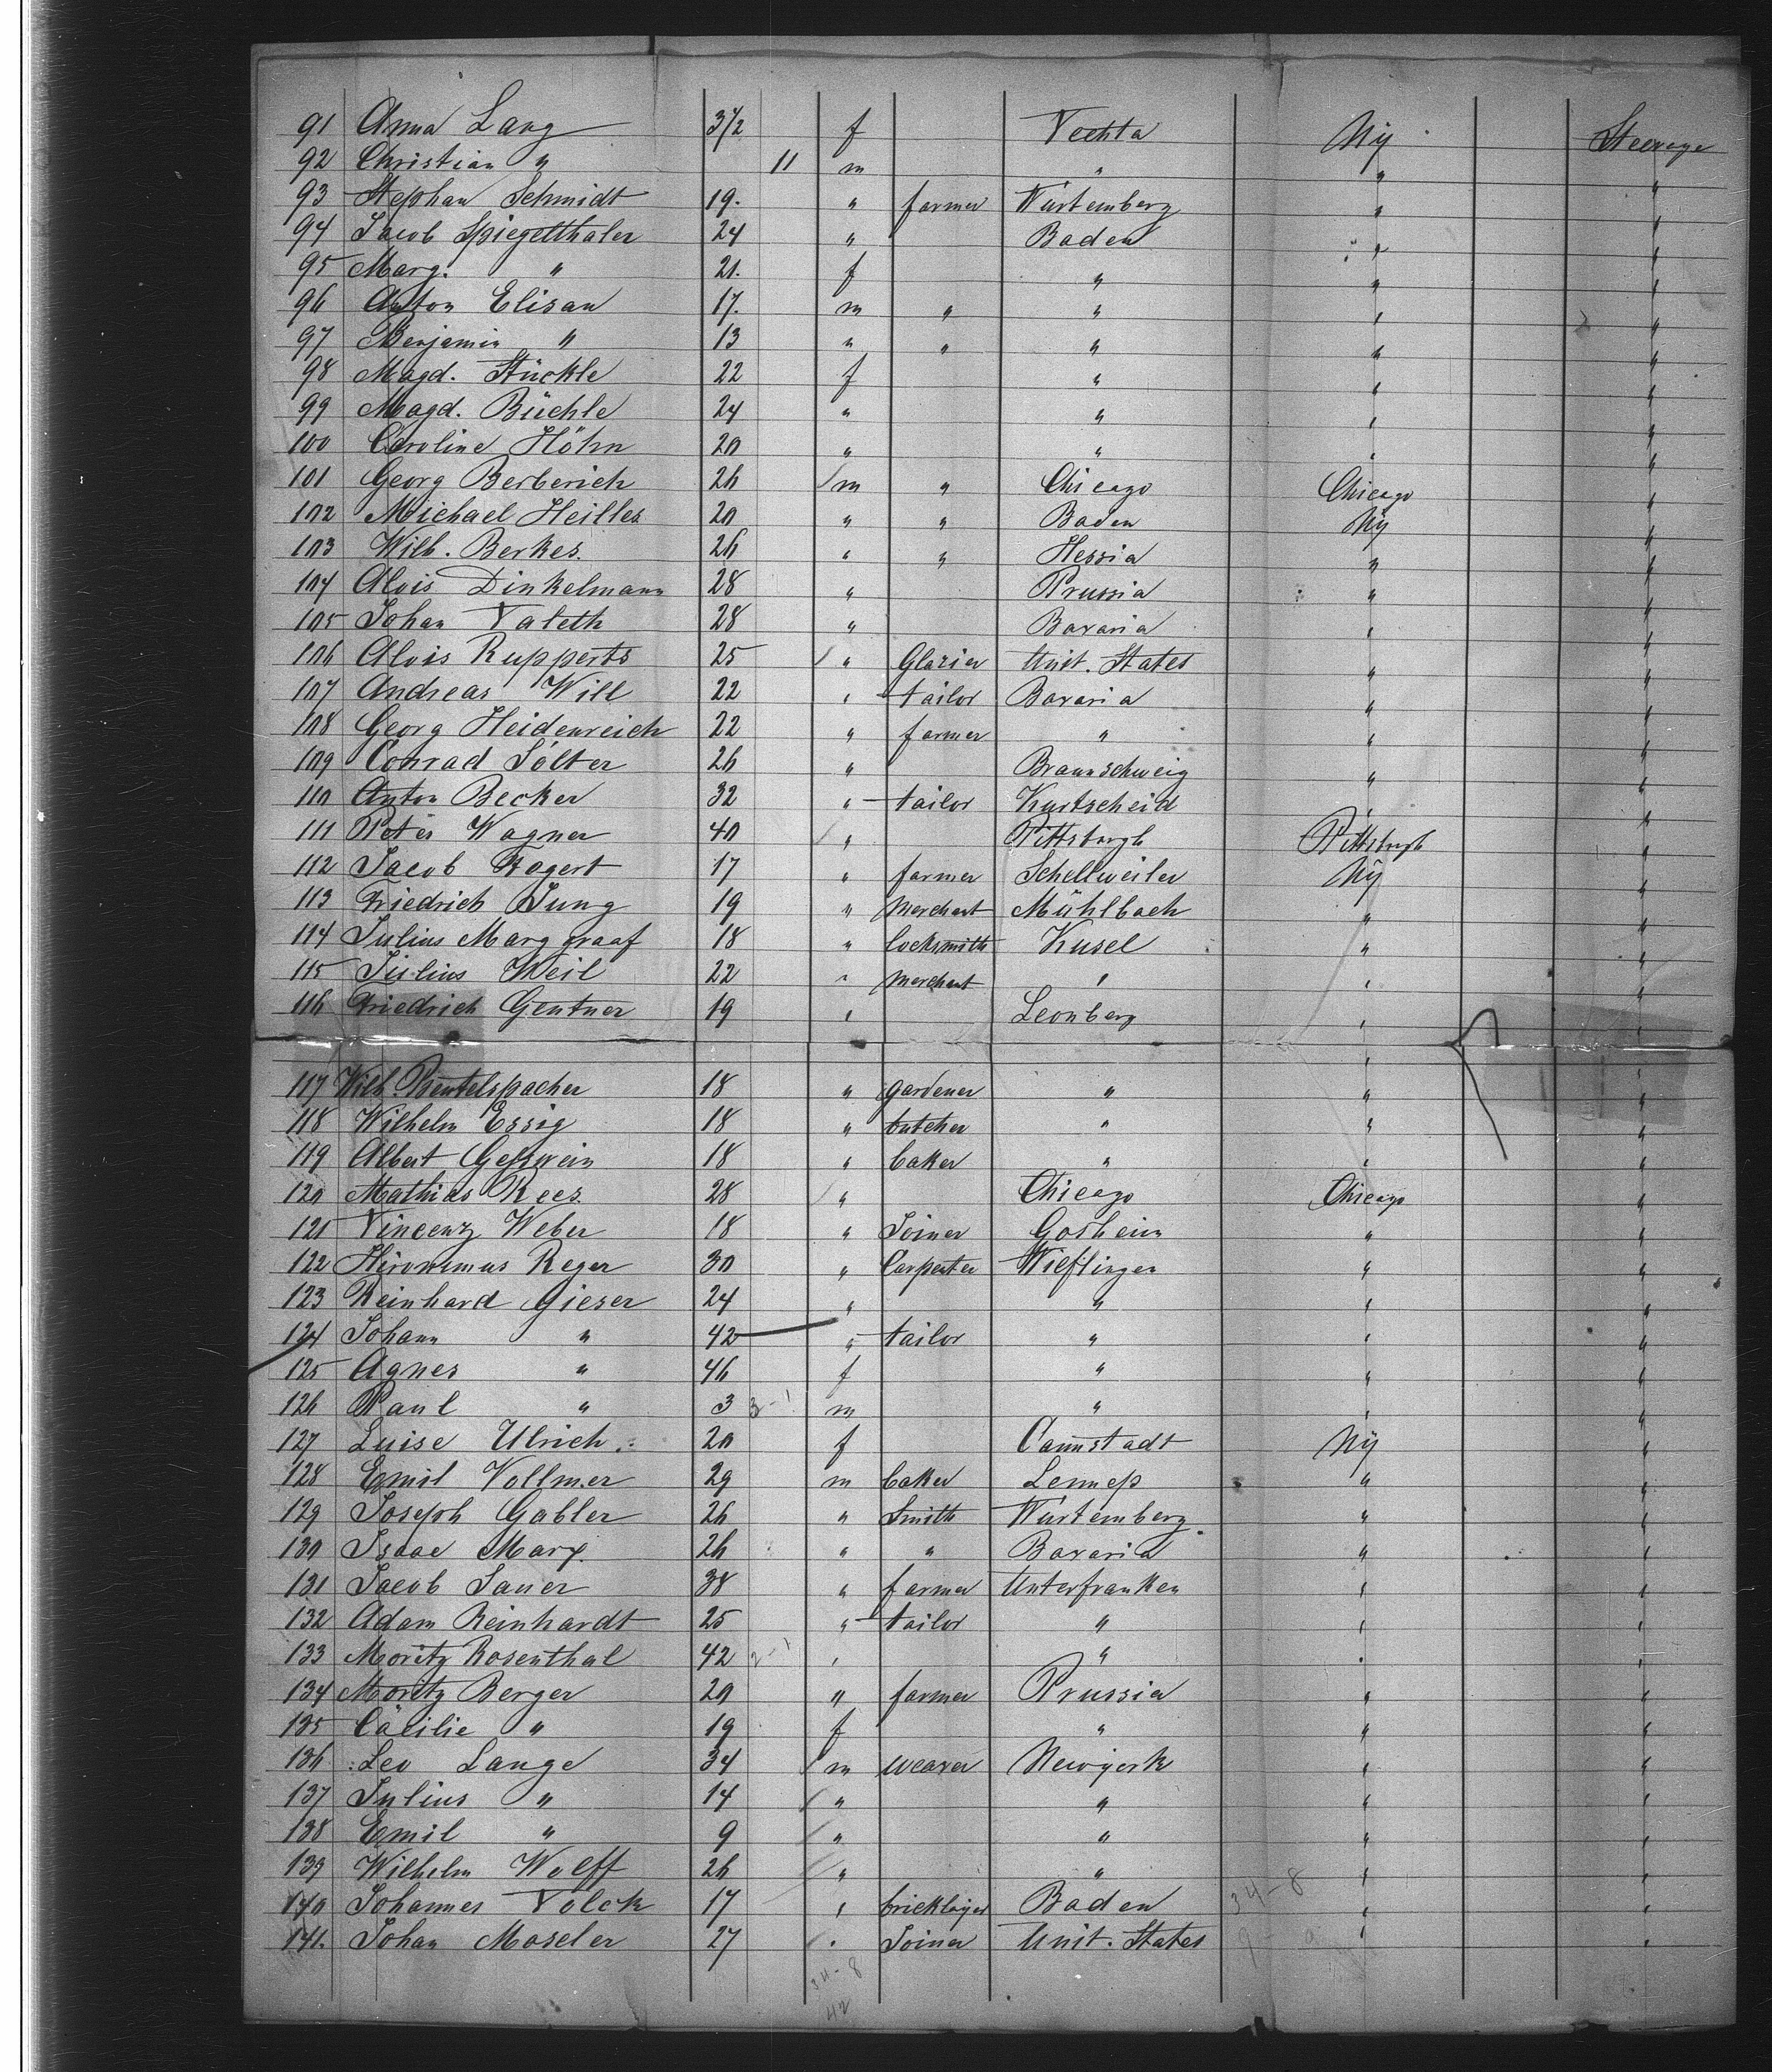 91 Anna Lang 3 1/2 f Vechta Ny Steerage
92 Christian " 11 m " " "
93 Stephan Schmidt 19. " farmer Würtemberg " "
94 Jacob Spiegelthaler 24 " Baden " "
95 Marg. " 21. f " " "
96 Anton Elisan 17. m " " " "
97 Benjamin " 13 " " " " "
98 Magd. Stückle 22 f " " "
99 Magd. Büchle 24 " " " "
100 Caroline Höhn 20 " " " "
101 Georg Berberich 26 m " Chicago Chicago "
102 Michael Heilles 20 " " Baden Ny "
103 Wilh. Berkes. 26 " " Hessia " "
104 Alois Dinkelmann 28 " Prussia " "
105 Johan Valeth 28 " Bavaria " "
106 Alois Rupperts 25 " Glazier Unit. States " "
107 Andreas Will 22 " tailor Bavaria " "
108 Georg Heidenreich 22 " farmer " " "
109 Conrad Sölter 26 " Braunschweig " "
110 Anton Becker 32 " tailor Kurtscheid " "
111 Peter Wagner 40 " Pittsburgh Pittsburgh "
112 Jacob Fogert 17 " farmer Schellweiler Ny "
113 Friedrich Jung 19 " Merchant Mühlbach " "
114 Julius Marggraaf 18 " locksmith Kusel " "
115 Julius Weil 22 " Merchant " " "
116 Friedrich Gentner 19 " Leonberg " "
117 Wilh. Beutelspacher 18 " gardener " " "
118 Wilhelm Essig 18 " butcher " " "
119 Albert Geßwein 18 " baker " " "
120 Mathias Rees. 28 " Chicago Chicago "
121 Vincenz Weber 18 " Joiner Gosheim " "
122 Hironimus Reger 30 " Carpenter Wieflingen " "
123 Reinhard Gieser 24 " " " "
124 Johann " 42 " tailor " " "
125 Agnes " 46 f " " "
126 Paul " 3 3-1 m " " "
127 Luise Ulrich 20 f Cannstadt Ny "
128 Emil Vollmer 29 m baker Lennep " "
129 Joseph Gabler 26 " Smith Würtemberg " "
130 Isaac Marx. 26 " " Bavaria " "
131 Jacob Sauer 38 " farmer Unterfranken " "
132 Adam Reinhardt 25 " tailor " " "
133 Moritz Rosenthal 42 2-1 " " " "
134 Moritz Berger 20 " farmer Prussia " "
135 Cäcilie " 19 f " " "
136 Leo Lange 34 m weaver Newyork " "
137 Julius " 14 " " " "
138 Emil " 9 " " " "
139 Wilhelm Wolff 26 " " " "
140 Johannes Volck 17 " bricklayer Baden 34-8 " "
141. Johan Moseler 27 " Joiner Unit. States 9 " "
34-8
42